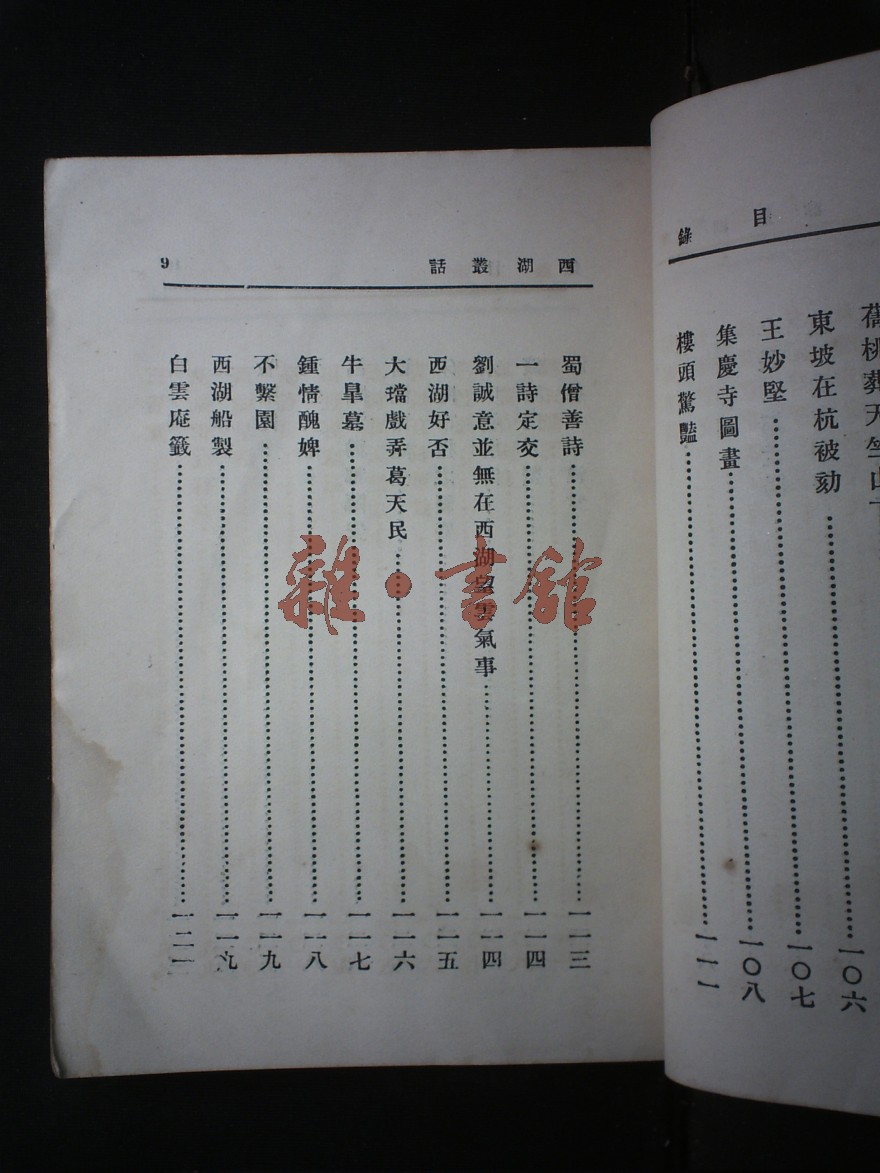 目錄
桃葬天竺山
東坡在杭被劾……一〇六
王妙堅……一〇七
集慶寺圖畫……一〇八
樓頭驚豔……一一一
西湖叢話 9
蜀僧善詩……一一三
一詩定交……一一四
劉誠意並無在西湖望雲氣事……一一四
西湖好否……一一五
大璫戲弄葛天民……一一六
牛皐墓……一一七
鍾情醜婢……一一八
不繫園……一一九
西湖船製……一一九
白雲庵籤……一二一
雜·書館